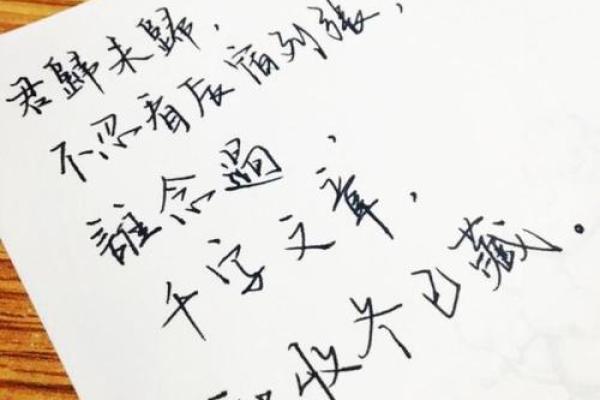 君歸未歸,
不忍看辰宿列張,
誰念過,
千字文章,
收冬已藏.